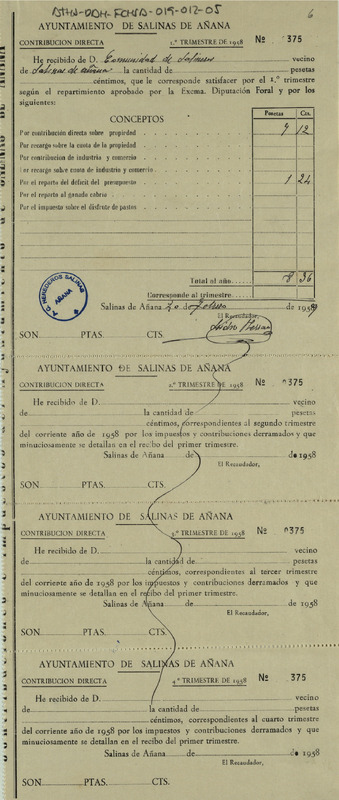 ATHA-DDH-FCHSA-019-012-05
6
AYUNTAMIENTO DE SALINAS DE AÑANA
CONTRIBUCIÓN DIRECTA 1.º TRIMESTRE DE 1958 Nº 375
He recibido de D. Comunidad de Salinas vecino
de Salinas de Añana la cantidad de pesetas
céntimos, que le corresponde satisfacer por el 1.º trimestre
según el repartimiento aprobado por la Excma. Diputación Foral y por los
siguientes:
CONCEPTOS Pesetas Cts.
Por contribución directa sobre propiedad 7 12
Por recargo sobre la cuota de la propiedad
Por contribución de industria y comercio
Por recargo sobre cuota de industria y comercio
Por el reporto del déficit del presupuesto 1 24
Por el reparto al ganado cabrío
Por el impuesto sobre el disfrute de pastos
Total al año 8 36
Corresponde al trimestre
HEREDEROS SALINAS
AÑANA
Salinas de Añana 20 de Febrero de 1959
El Recaudador,
Isidro
SON PTAS. CTS.
AYUNTAMIENTO DE SALINAS DE AÑANA
CONTRIBUCIÓN DIRECTA 2.º TRIMESTRE DE 1958 Nº 375
He recibido de D. vecino
de la cantidad de pesetas
céntimos, correspondientes al segundo trimestre
del corriente año de 1958 por los impuestos y contribuciones derramados y que
minuciosamente se detallan en el recibo del primer trimestre.
Salinas de Añana de de 1958
El Recaudador,
SON PTAS. CTS.
AYUNTAMIENTO DE SALINAS DE AÑANA
CONTRIBUCIÓN DIRECTA 3.º TRIMESTRE DE 1958 Nº 375
He recibido de D. vecino
de la cantidad de pesetas
céntimos, correspondientes al tercer trimestre
del corriente año de 1958 por los impuestos y contribuciones derramados y que
minuciosamente se detallan en el recibo del primer trimestre.
Salinas de Añana de de 1958
El Recaudador,
SON PTAS. CTS.
AYUNTAMIENTO DE SALINAS DE AÑANA
CONTRIBUCIÓN DIRECTA 4.º TRIMESTRE DE 1958 Nº 375
He recibido de D. vecino
de la cantidad de pesetas
céntimos, correspondientes al cuarto trimestre
del corriente año de 1958 por los impuestos y contribuciones derramados y que
minuciosamente se detallan en el recibo del primer trimestre.
Salinas de Añana de de 1958
El Recaudador,
SON PTAS. CTS.